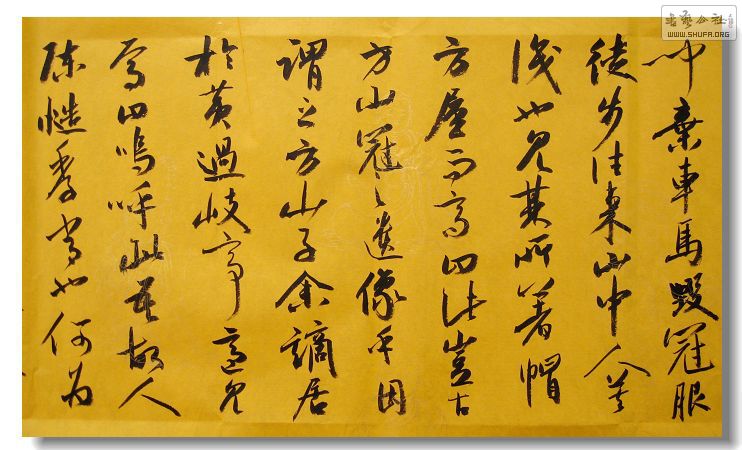 书艺公社
WWW.SHUFA.ORG
聞棄車馬毀冠服
徒步往來山中人莫
識也見其所著帽
方屋而高曰此豈古
方山冠之遺像乎因
謂之方山子余謫居
於黃過岐亭適見
焉曰嗚呼此吾故人
陳慥季常也何為